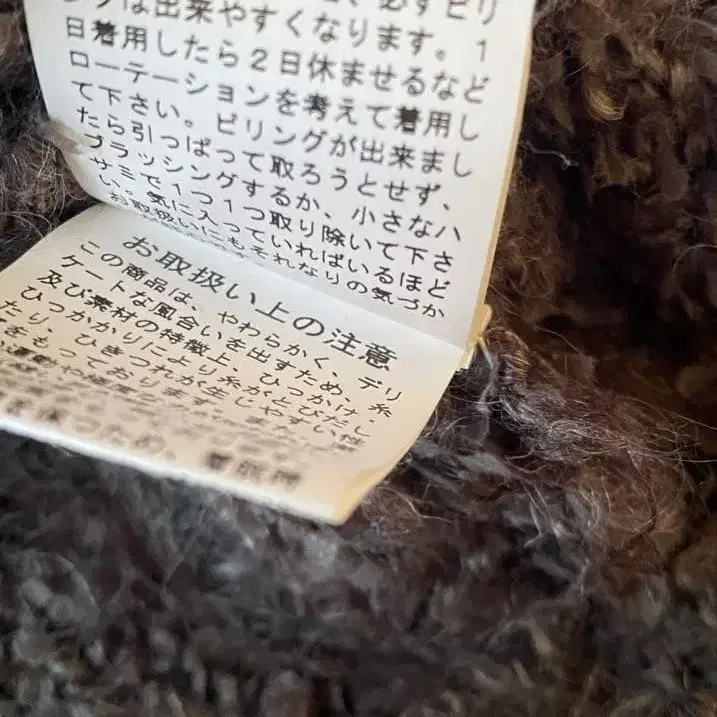 必ずピリ
ングは出来やすくなります。1
日着用したら2日休ませるなど
ローテーションを考えて着用し
て下さい。ピリングが出来まし
たら引っぱって取ろうとせず、
ブラッシングするか、小さなハ
サミで1つ1つ取り除いて下さ
い。気に入っていればいるほど
お取扱いにもそれなりの気づか
お取扱い上の注意
この商品は、やわらかく、デリ
ケートな風合いを出すため、糸
及び素材の特徴上、ひっかけ・
ひっかかりにより糸がとびだし
たり、ひきつれが生じやすい性
をもっております。
ため、着用時